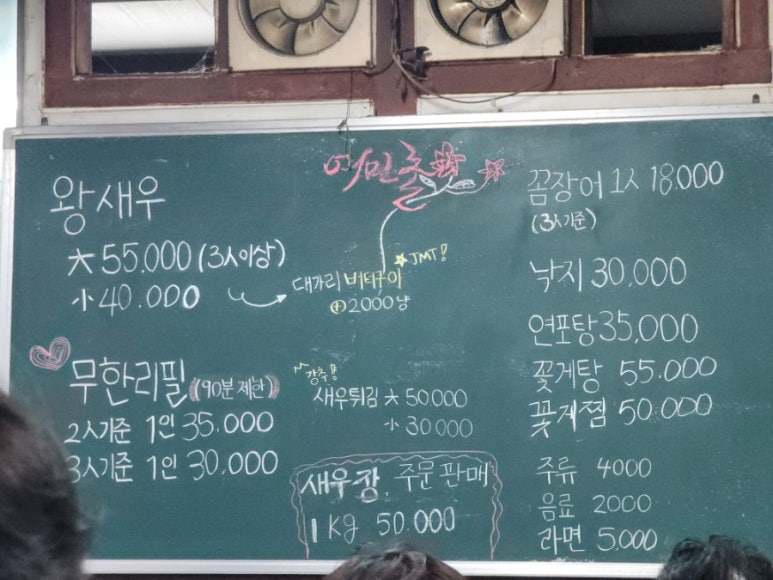 이민출
왕새우
大 55.000 (3人이상)
小 40.000
대가리 버터구이
JMT!
⊕2000냥
무한리필 (90분 제한)
2人기준 1인 35.000
3人기준 1인 30,000
강추!
새우튀김 大 50.000
小 30.000
새우장 주문판매
1kg 50.000
꼼장어 1人 18.000
(3人기준)
낙지 30,000
연포탕 35,000
꽃게탕 55.000
꽃게찜 50.000
주류 4000
음료 2000
라면 5.000